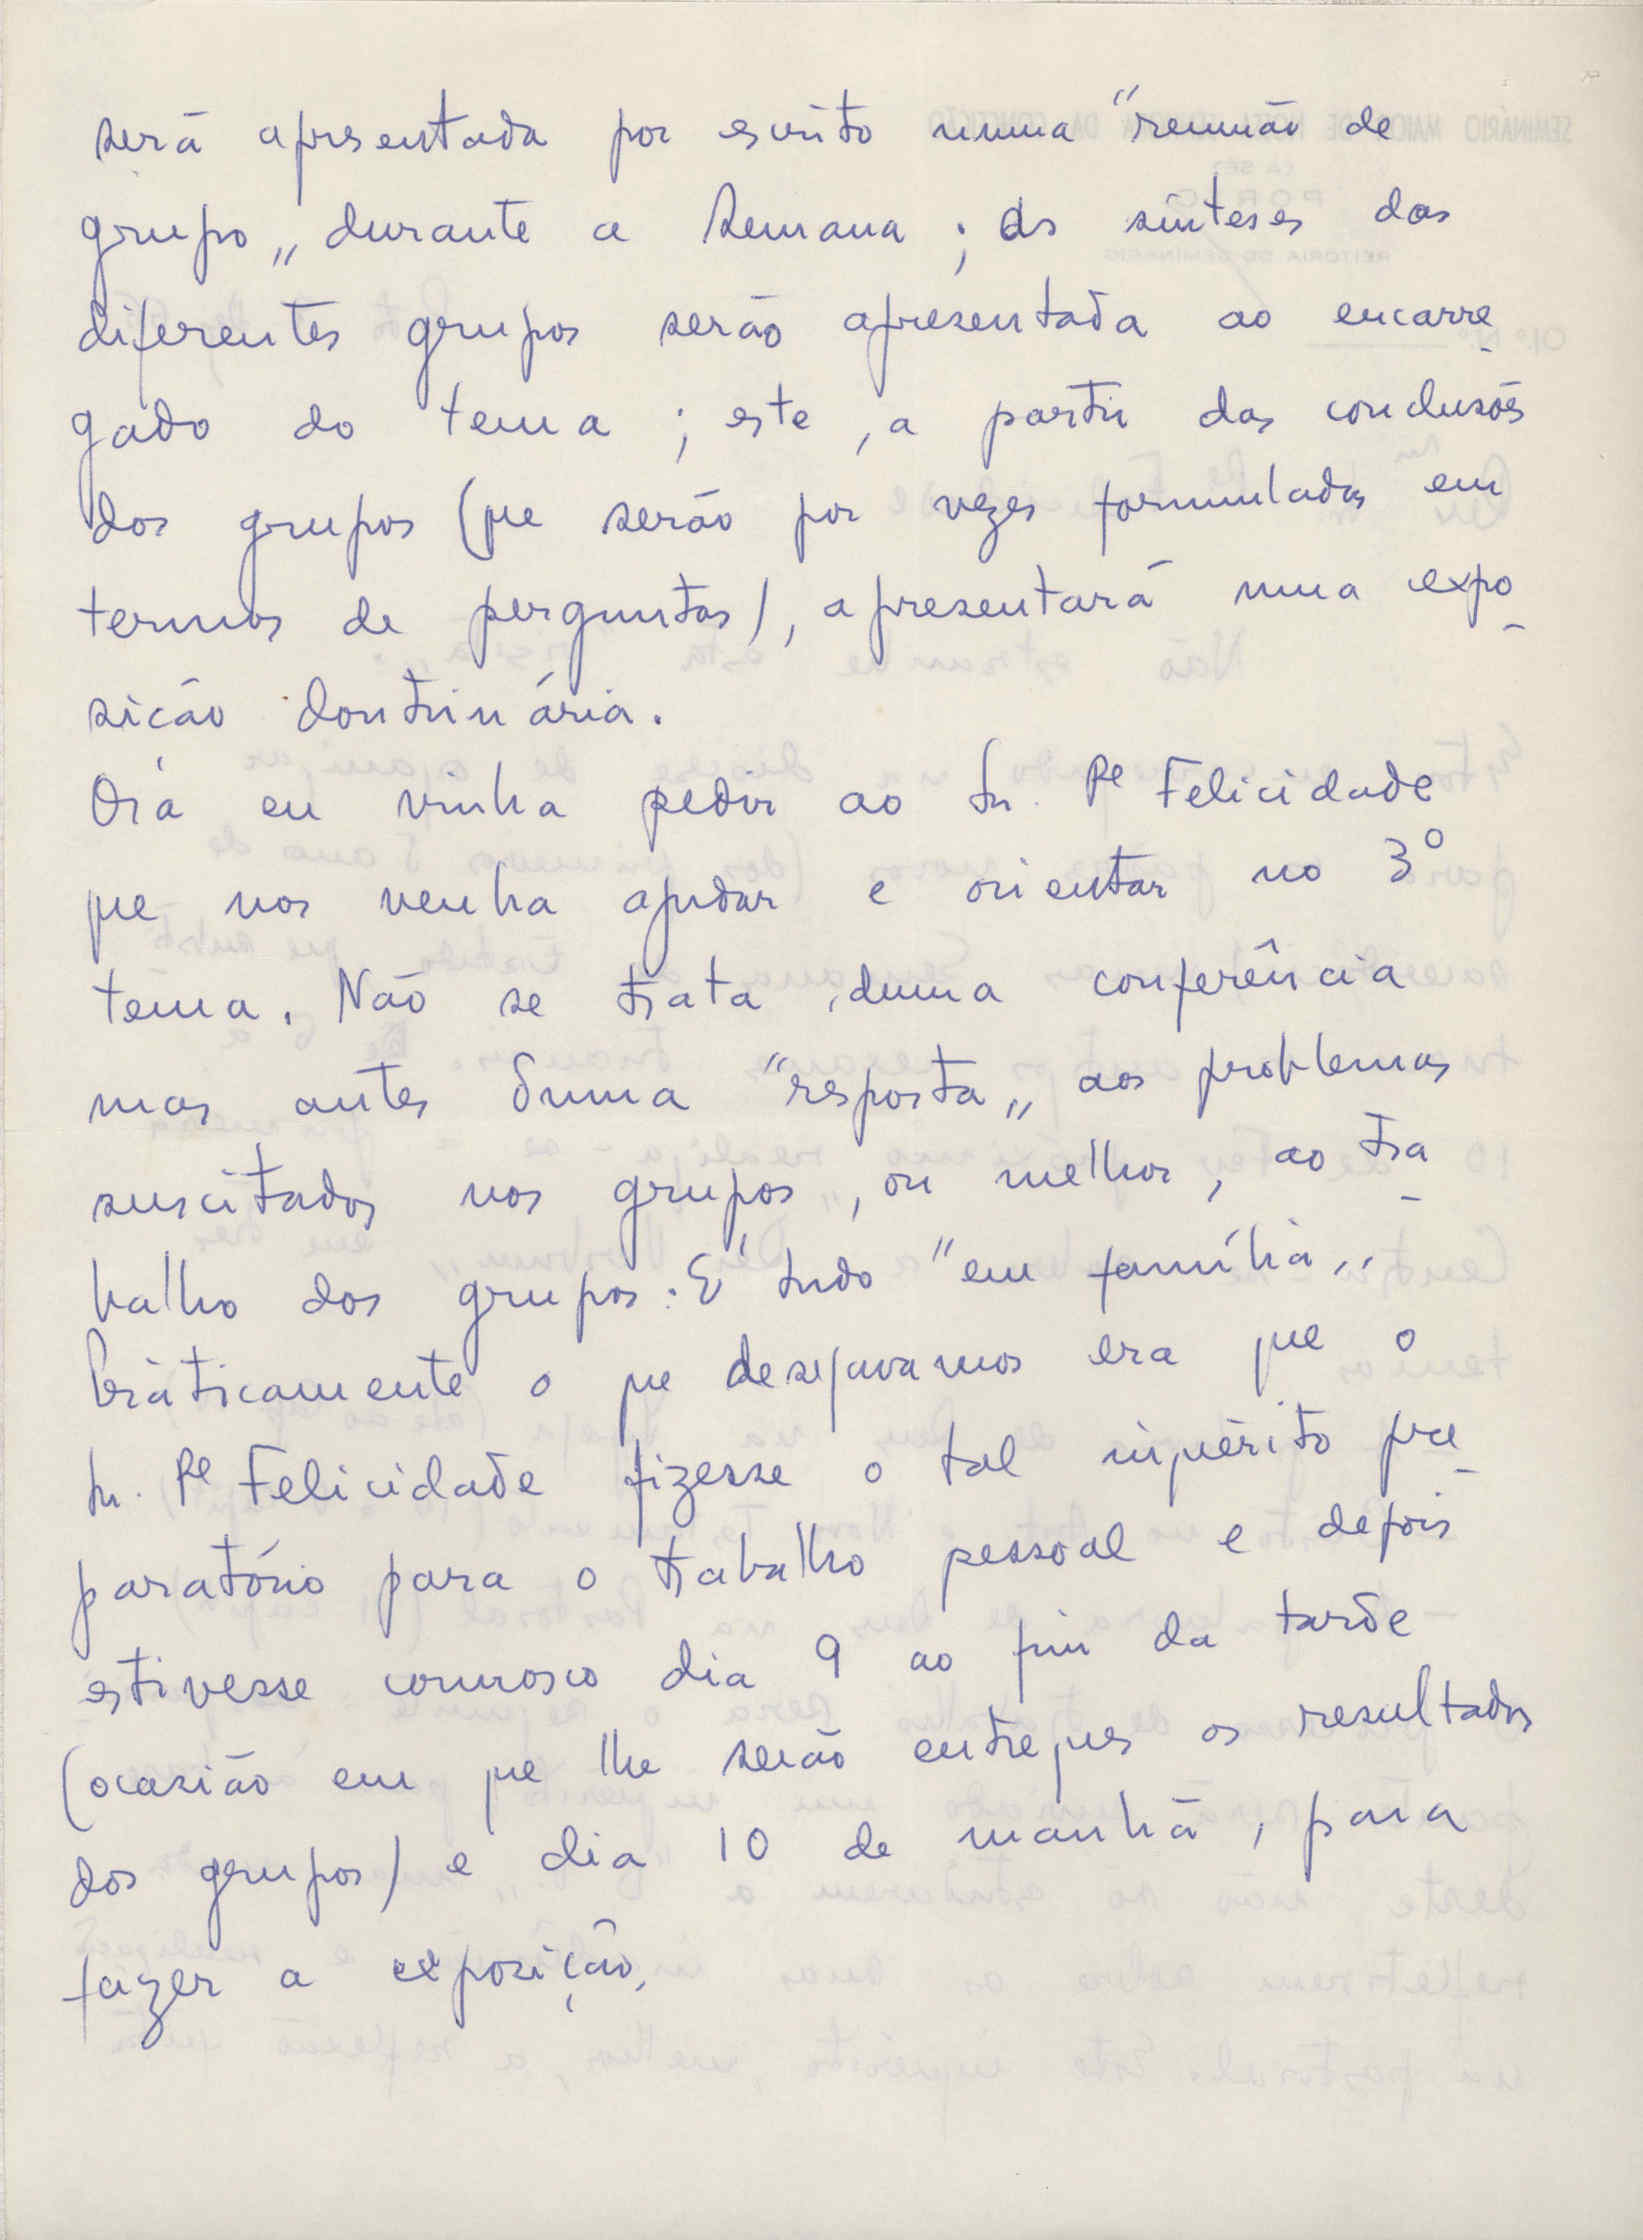 será apresentada por escrito numa "reunião de
grupo„ durante a Semana ; as sínteses dos
diferentes grupos serão apresentada ao encarre-
gado do tema ; este , a partir das conclusões
dos grupos (que serão por vezes formuladas em
termos de perguntas), apresentará uma expo-
sição doutrinária.
Ora eu vinha pedir ao Sr. Pe Felicidade
que nos venha ajudar e orientar no 3º
tema. Não se trata duma conferência
mas antes duma "resposta„ aos problemas
suscitados nos grupos, ou melhor, ao tra-
balho dos grupos. É tudo "em família„.
Pràticamente o que desejavamos era que o
Sr. Pe Felicidade fizesse o tal inquérito pre-
paratório para o trabalho pessoal e depois
estivesse connosco dia 9 ao fim da tarde
(ocasião em que lhe serão entregues os resultados
dos grupos) e dia 10 de manhã, para
fazer a exposição.